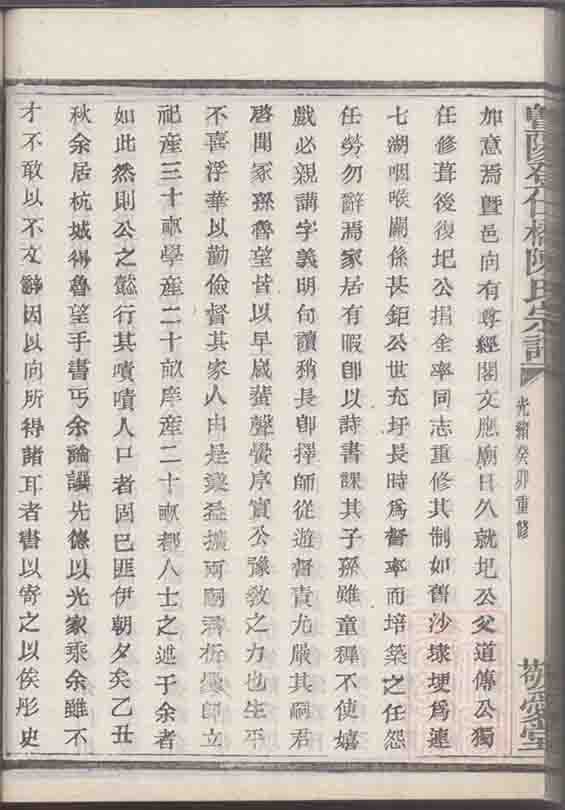 暨陽 仁橋陳氏宗譜
光緒癸卯重修
敬愛堂
加意焉暨邑向有尊經閣文應廟日久就圮公父道傳公獨
任修葺後復圮公捐金率同志重修其制如舊沙埭埂爲連
七湖咽喉關係甚鉅公世充圩長時爲督率而培築之任怨
任勞勿辭焉家居有暇卽以詩書課其子孫雖童穉不使嬉
戲必親講字義明句讀稍長卽擇師從遊督責尤嚴其嗣君
啓聞冢孫魯望皆以早歲蜚聲黌序實公豫敎之力也生平
不喜浮華以勤儉督其家人由是業益擴兩嗣君析爨卽立
祀產三十畝學產二十畝庠產二十畝都人士之述于余者
如此然則公之懿行其嘖嘖人口者固已匪伊朝夕矣乙丑
秋余居杭城得魯望手書丐余論譔先德以光家乘余雖不
才不敢以不文辭因以向所得諸耳者書以寄之以俟彤史